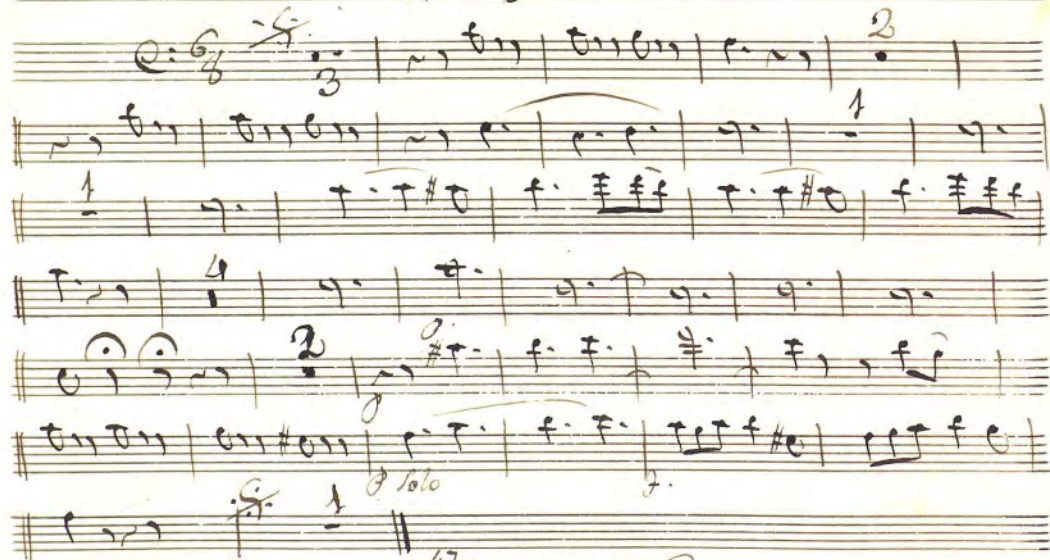 6/8 3 2
1
1
4
2 p
P Solo f.
1